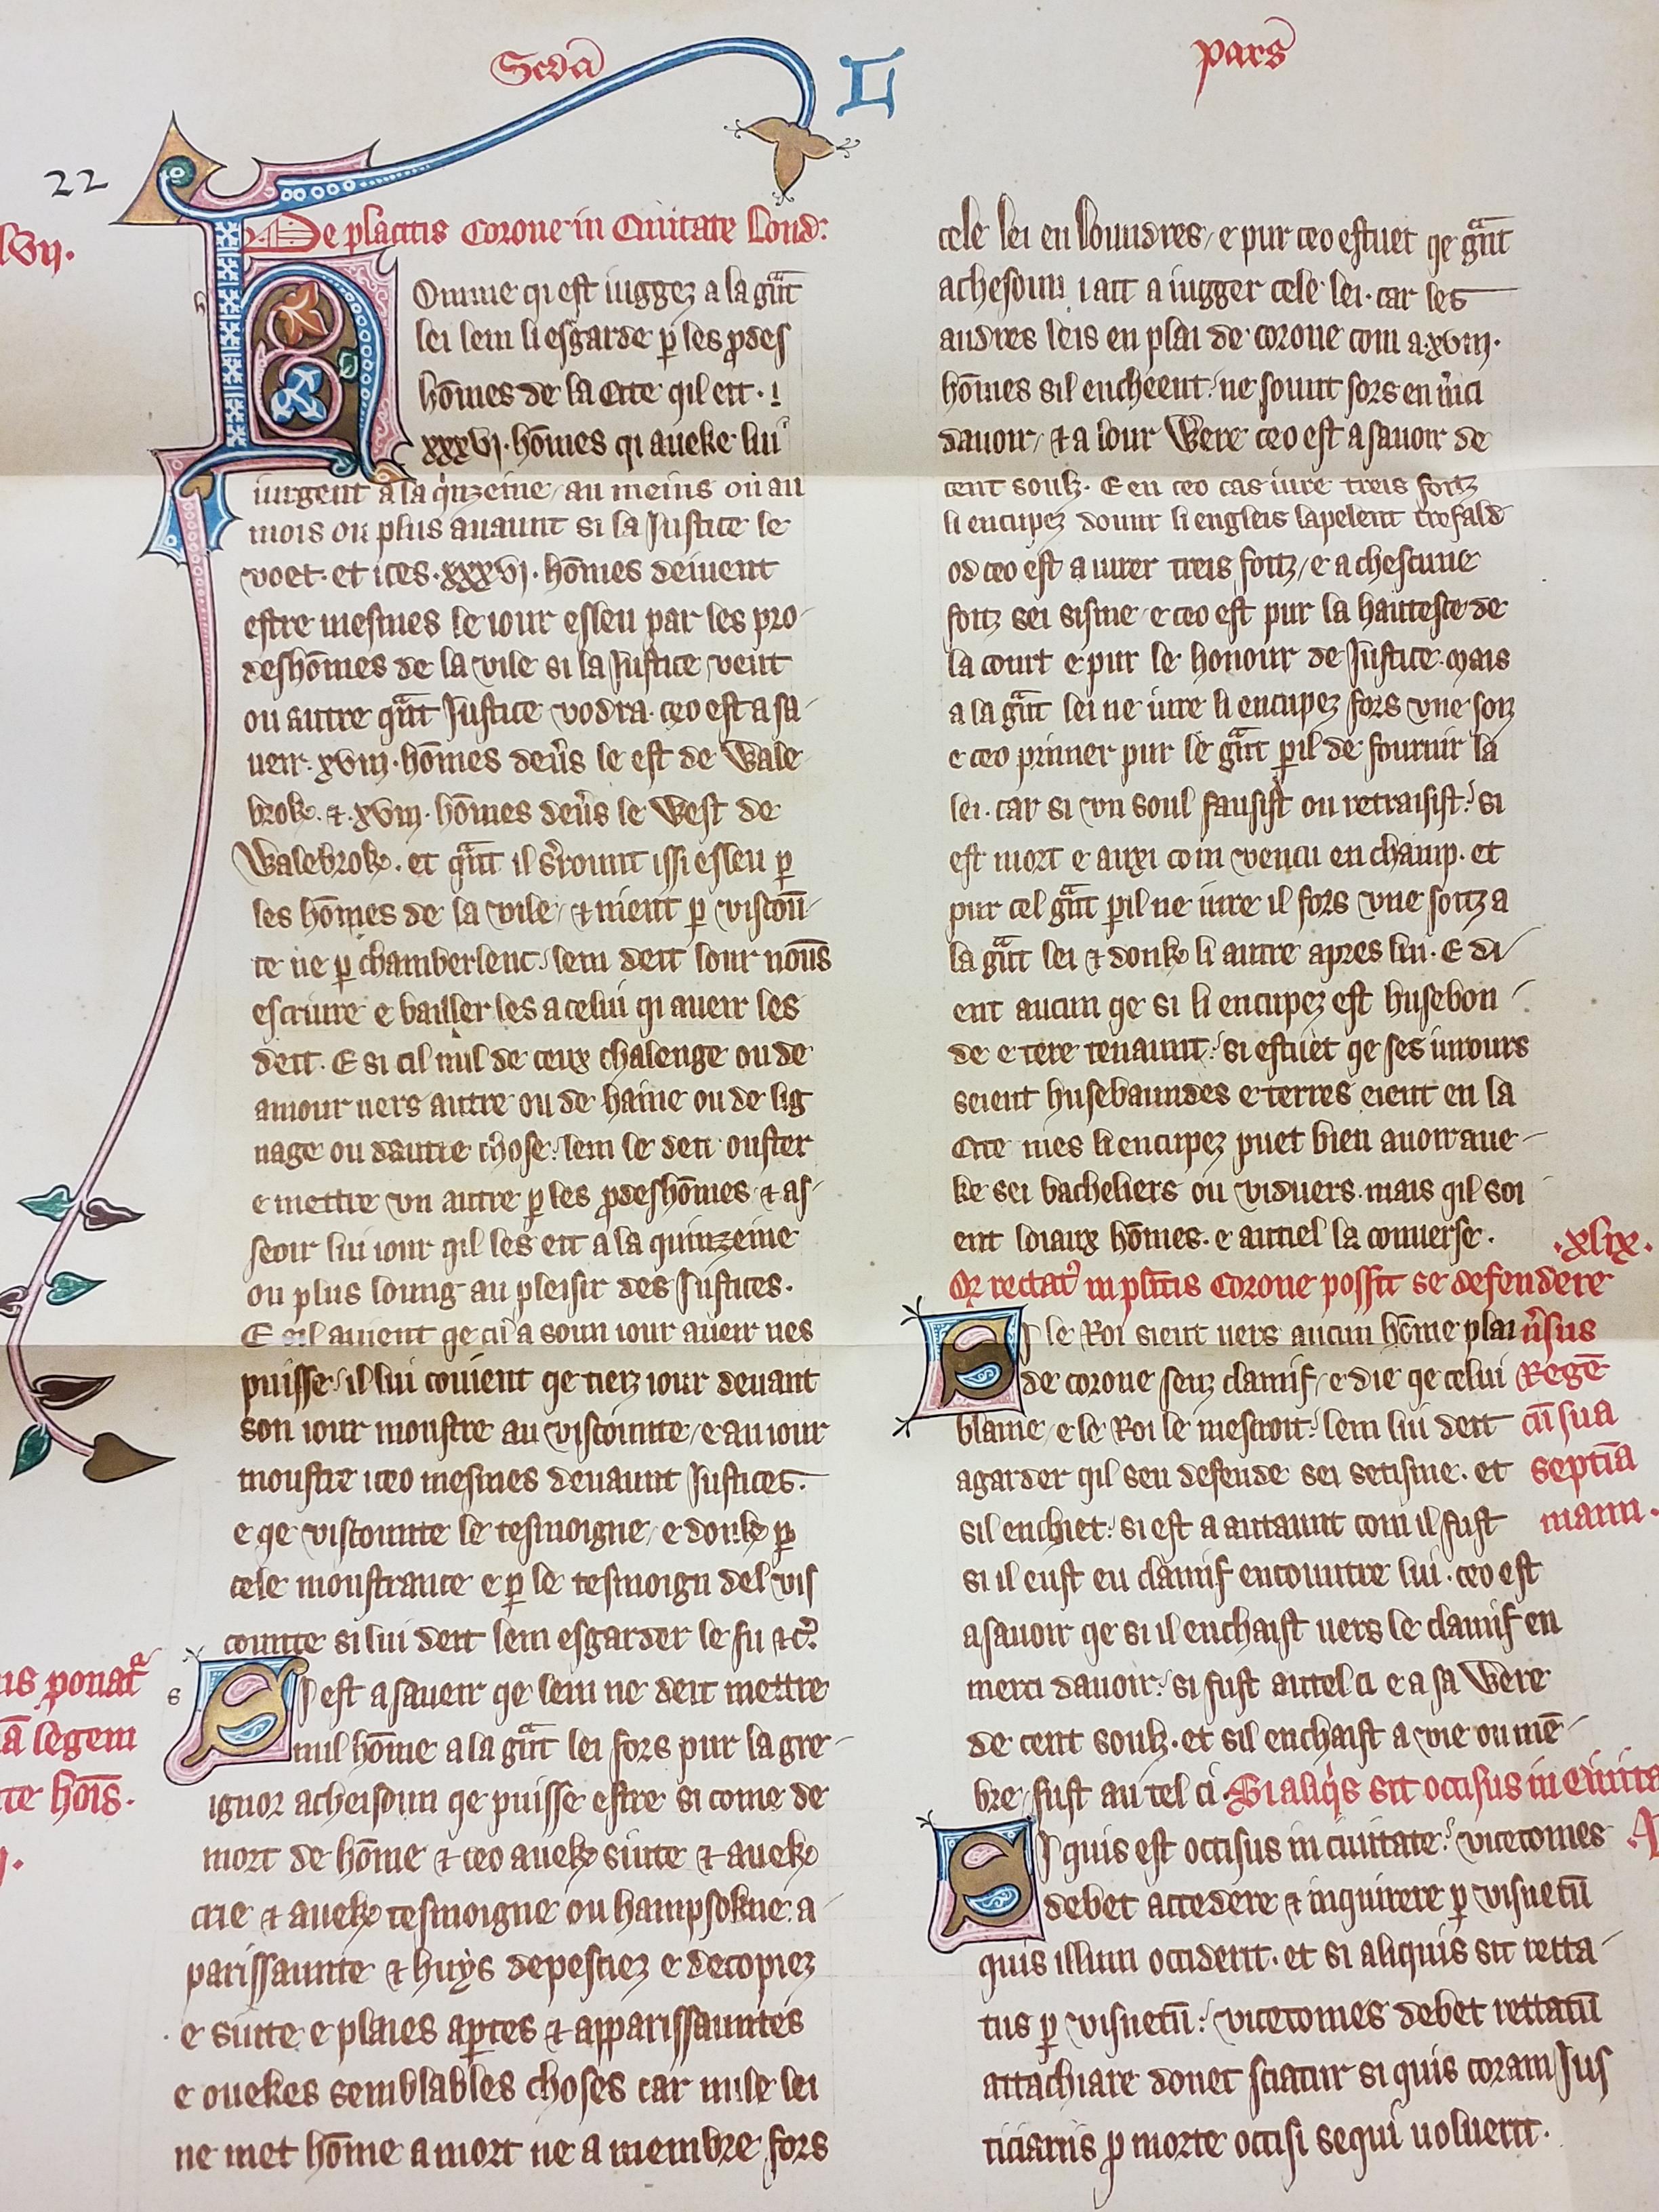 Secda
pars
L
22
lvij.
De placitis Corone in Ciuitate Lond:
Homme qi est iuggez a la gᵃnt
lei lem li esgarde p̱ les ꝓdes
hōmes de la Cite qil eit · i
xxxvi · hōmes qi aueke lui
iurgent a la qinzeine / au meins ou au
mois ou plus auaunt si la Iustice le
voet · et ices · xxxvj · hōmes deiuent
estre mesmes le iour esleu par les pro-
deshōmes de la vile si la Iustice veut
ou autre qᵃnt Iustice vodra · ceo est a sa-
ueir · xviij · hōmes deu's le est de Wale
brok · ⁊ · xviij · hōmes deu's le West de
Walebrok · et qᵃnt il s'rount issi esleu p̱
les hōmes de la vile / ⁊ nient p̱ viscoū-
te ne p̱ chamberlenc : lem deit lour nōus
escriure e bailler les a celui qi aueir les
deit · E si cil nul de ceux chalenge ou de
amour uers autre ou de haine ou de lig
nage ou dautre chose : lem le deit ouster
e mettre vn autre p̱ les ꝓdeshōmes / ⁊ as-
seoir lui iour qil les eit a la quinzeine
ou plus loung au pleisir des Iustices ·
E sil auient qe cil a soun iour aueir nes
puisse : il lui couient qe tierz iour deuant
son iour moustre au viscounte / e au iour
moustre iceo mesmes deuaunt Iustices ·
e qe viscounte le tesmoigne / e donk p̱
cele moustrance e p̱ le tesmoign del vis
counte si lui deit lem esgarder le fu ⁊c̄.
us ponatᵃ
ā legem
te hōis ·
s
Si est a saueir qe lem ne deit mettre
nul hōme a la gᵃnt lei fors pur la gre-
ignor acheisoun qe puisse estre si come de
mort de hōme ⁊ ceo auek suite ⁊ auek
crie ⁊ auek tesmoigne ou hampsokne a-
parissaunte ⁊ huys depesciez e decopiez
e suite e plaies ap̱tes ⁊ apparissauntes
e ouekes semblables choses car nule lei
ne met hōme a mort ne a membre fors
cele lei en loundres / e pur ceo estuet qe gᵃnt
achesoun i att a iugger cele lei · car les
autres leis en plai de corone com a · xviij ·
hōmes sil encheent : ne sount fors en m'ci
dauoir / ⁊ a lour Were ceo est a sauoir de
cent soulz · E en ceo cas iure treis foitz
li encupez dount li engleis lapelent trofald
od ceo est a iurer treis foitz / e a chescune
foitz sei sisme / e ceo est pur la hautesce de
la court e pur le honour de Iustice · mais
a la gᵃnt lei ne iure li encupez fors vne foiz
e ceo primer pur le gᵃnt p̱il de fournir la
lei · car si vn soul fausist ou retraisist : si
est mort e auxi com vencu en champ · et
pur cel gᵃnt p̱il ne iure il fors vne foitz a
la gᵃnt lei ⁊ donk li autre apres lui · E di-
ent aucun qe si li encupez est husebon-
de e tere tenaunt : si estuet qe ses iurours
seient husebaundes e terres eient en la
Cite mes li encupez puet bien auoir aue-
ke sei bacheliers ou viduers · mais qil soi
ent loiaux hōmes · e autiel la conuerse ·
· xlix ·
Qͥ rectatꝰ in plītis Corone possit se defendere
Si le Roi sieut uers aucun hōme plai n'sus
de corone senz clamif / e die qe celui Regē
blame / e le Roi le mescroit : lem lui deit cū sua
agarder qil seu defende sei setisme · et septīa
sil enchiet : si est a autaunt com il fust manu ·
si il eust eu clamif encountre lui · ceo est
a sauoir qe si il enchaist uers le clamif en
merci dauoir : si fust autel ci e a sa Were
de cent soulz · et sil enchaist a vie ou mē-
bre / fust au tel ci · Si aliqͥs sit occisus in Ciuita
Si quis est occisus in ciuitate : vicecomes
debet accedere ⁊ inquirere p̱ visnetū
quis illum occiderit · et si aliquis sit retta-
tus p̱ visnetū : vicecomes debet rettatū
attachiare donec sciatur si quis coram Ius
ticiariis ꝓ morte occisi sequi uoluerit ·